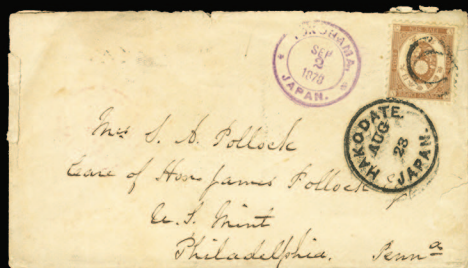 YOKOHAMA,
SEP
2
1878
JAPAN.
HAKODATE.
AUG
23
JAPAN.
Mrs S. A. Pollock
Care of Hon James Pollock
U. S. Mint
Philadelphia. Penna